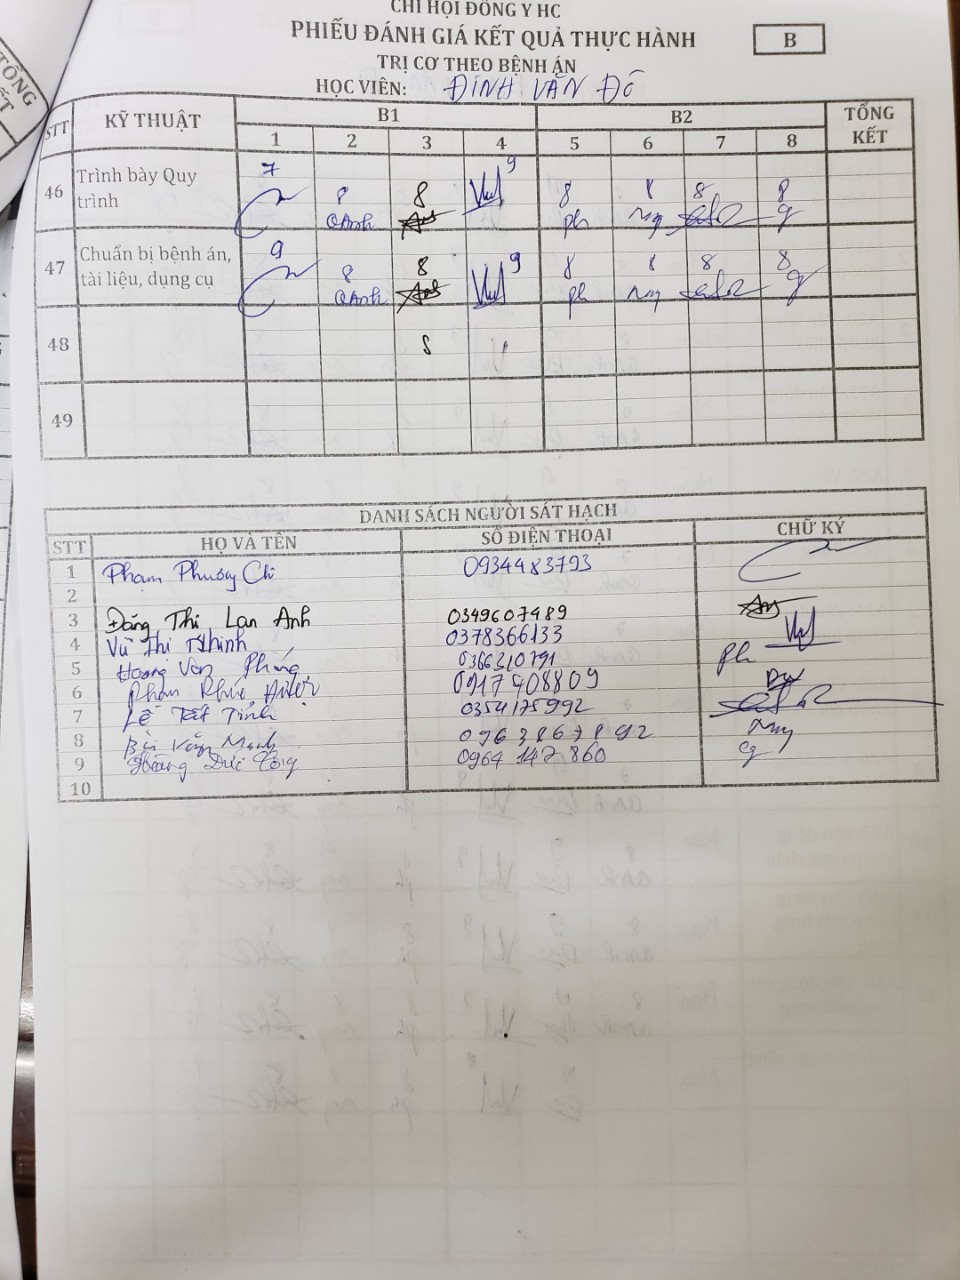 CHI HỘI ĐÔNG Y HC
PHIẾU ĐÁNH GIÁ KẾT QUẢ THỰC HÀNH
B
TRỊ CƠ THEO BỆNH ÁN
HỌC VIÊN: ĐINH VĂN ĐÔ
STT KỸ THUẬT B1 B2 TỔNG KẾT
1 2 3 4 5 6 7 8
46 Trình bày Quy trình
7 8 8 9 8 8 8 8
QAnh Ph
47 Chuẩn bị bệnh án, tài liệu, dụng cụ
9 8 8 9 8 8 8 8
QAnh Ph
48
49
DANH SÁCH NGƯỜI SÁT HẠCH
STT HỌ VÀ TÊN SỐ ĐIỆN THOẠI CHỮ KÝ
1 Phạm Phương Chi 0934483793
2
3 Đăng Thi Lan Anh 0349607489
4 Vũ Thi Thinh 0378366133
5 Hoang Văn 0366310791 Ph
6 Phạm 0917408809
7 Lê Tất Tính 0354175992
8 Bùi Văn Mạnh 0963867892
9 Hoàng Đức 0964 147 860
10
TỔNG